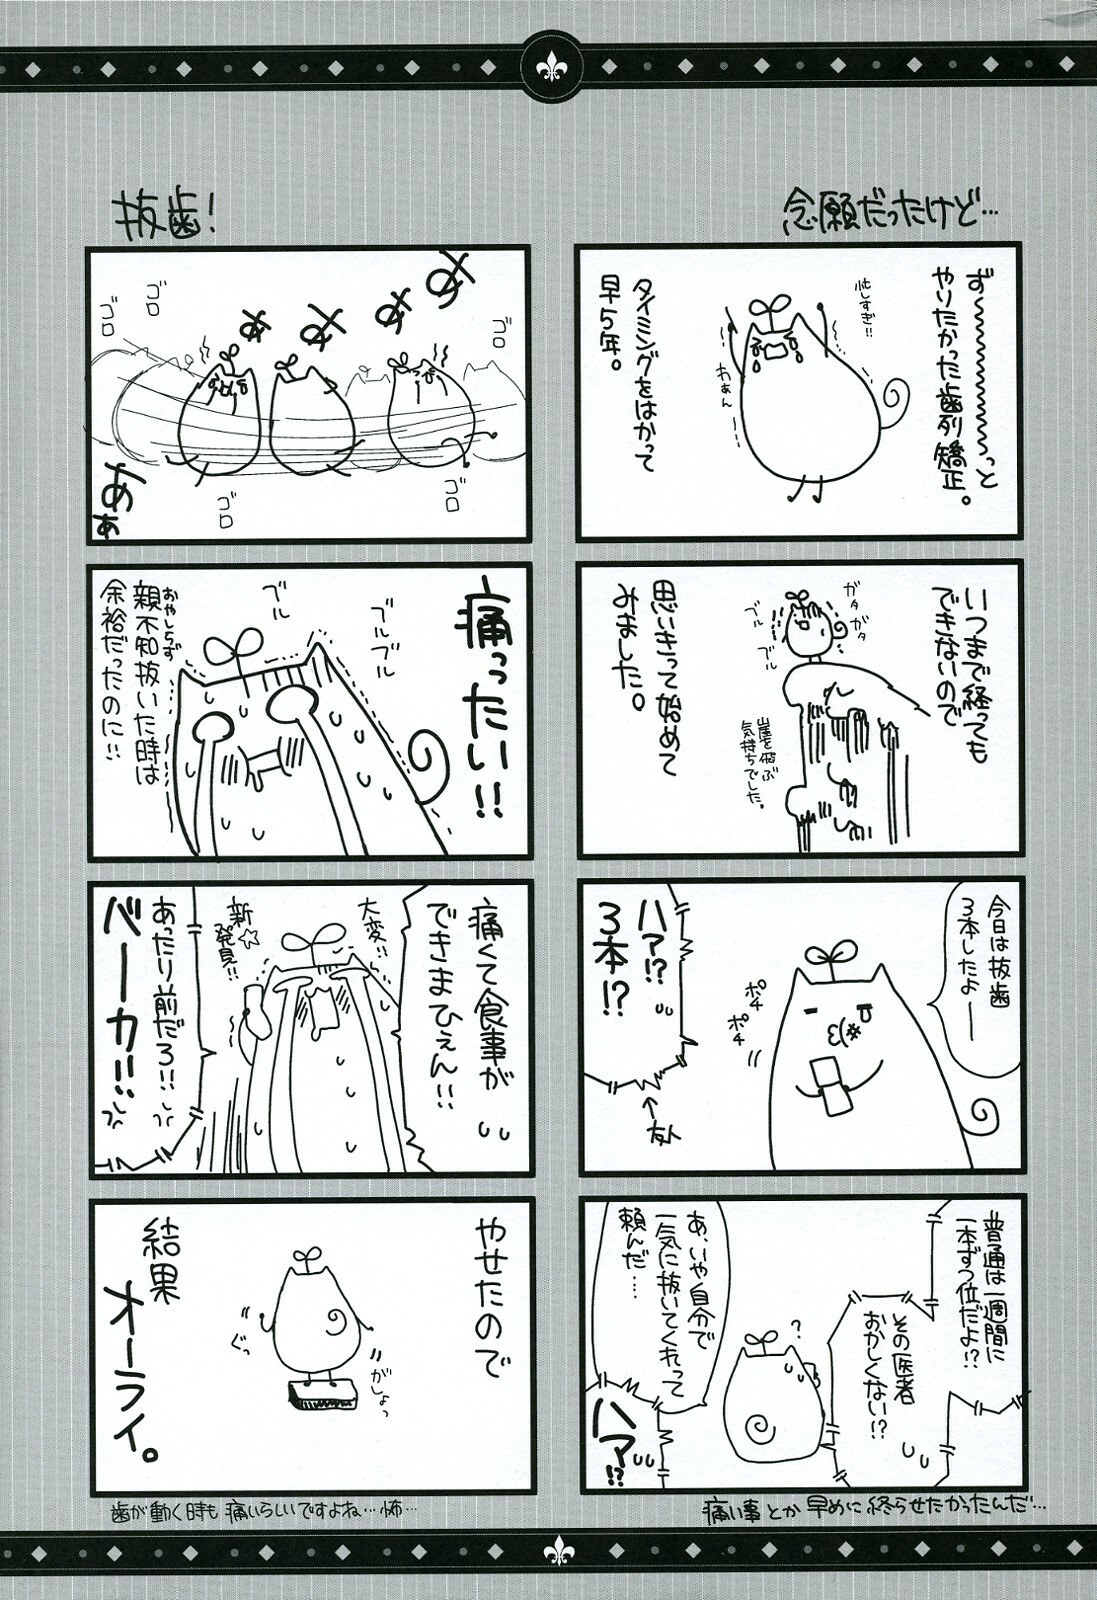 念願だったけど…
ず〜〜〜〜っと
やりたかった歯列矯正。
忙しすぎ!!
わぁん
タイミングをはかって
早5年。
いつまで経っても
できないので
ガタガタ
ブル
ブル
崖を飛ぶ
気持ちでした。
思いきって始めて
みました。
今日は抜歯
3本したよー
ポチ
ポチ
ハァ!?
3本!?
←友人
普通は一週間に
一本ずつ位だよ!?
その医者
おかしくない!?
?
あ、いや自分で
一気に抜いてくれって
頼んだ……
ハァ!?
痛い事とか早めに終らせたかったんだ…
抜歯!
ああああ
ゴロ
ゴロ
ゴロ
ゴロ
ゴロ
あぁ
痛ったい!!
ブル
ブルブル
親不知抜いた時は
おやしらず
余裕だったのに!!
痛くて食事が
できまひぇん!!
大変!!
新☆
発見!!
あったり前だろ!!
バーカ!!
やせたので
がしょっ
ぐっ
結果
オーライ。
歯が動く時も痛いらしいですよね…怖…